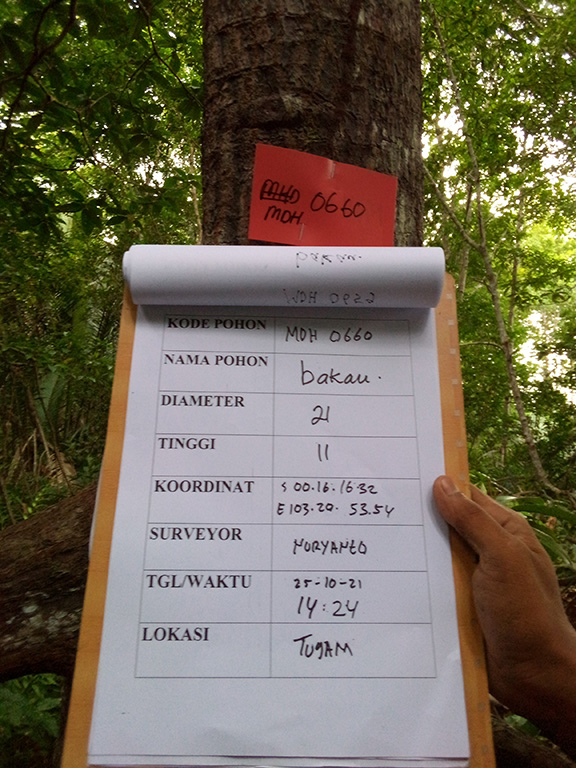 MDH 0660
bakau.
KODE POHON MDH 0660
NAMA POHON bakau.
DIAMETER 21
TINGGI 11
KOORDINAT S 00.16.16.32
E 103.29. 53.54
SURVEYOR NURYANTO
TGL/WAKTU 25-10-21
14:24
LOKASI TUGAM